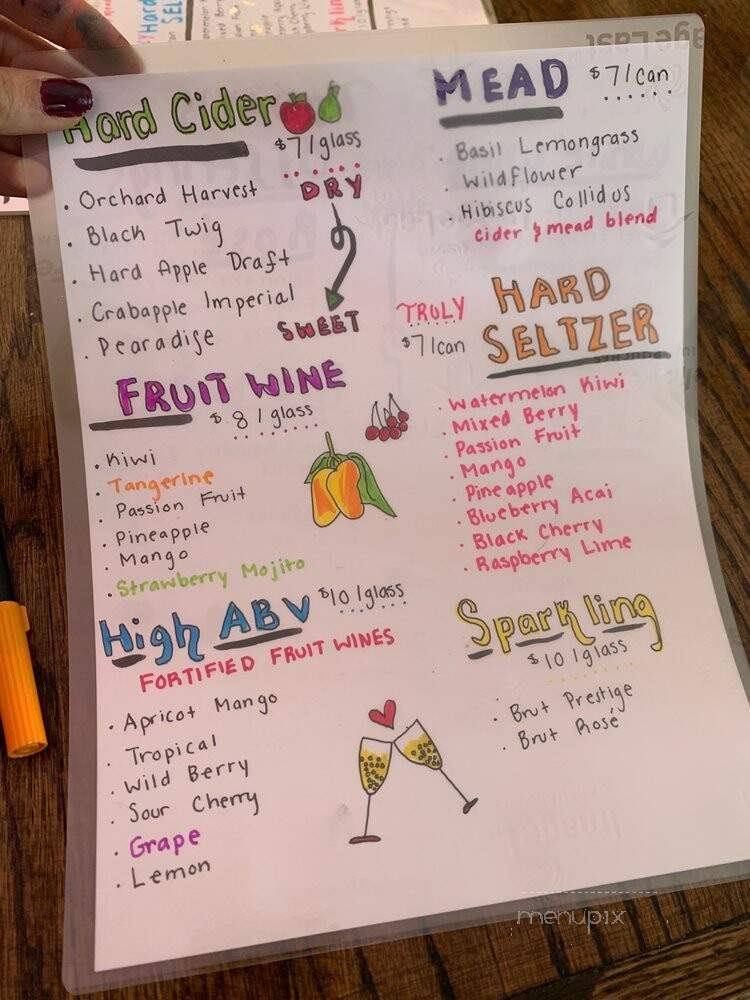 Hard Cider
$7/glass
DRY
SWEET
· Orchard Harvest
· Black Twig
· Hard Apple Draft
· Crabapple Imperial
· Pearadise
MEAD $7/can
· Basil Lemongrass
· Wildflower
· Hibiscus Collidus
cider & mead blend
TRULY
$7/can
HARD
SELTZER
· Watermelon Kiwi
· Mixed Berry
· Passion Fruit
· Mango
· Pineapple
· Blueberry Acai
· Black Cherry
· Raspberry Lime
FRUIT WINE
$8/glass
· Kiwi
· Tangerine
· Passion Fruit
· Pineapple
· Mango
· Strawberry Mojito
High ABV $10/glass
FORTIFIED FRUIT WINES
· Apricot Mango
· Tropical
· Wild Berry
· Sour Cherry
· Grape
· Lemon
Sparkling
$10/glass
· Brut Prestige
· Brut Rosé
menupix